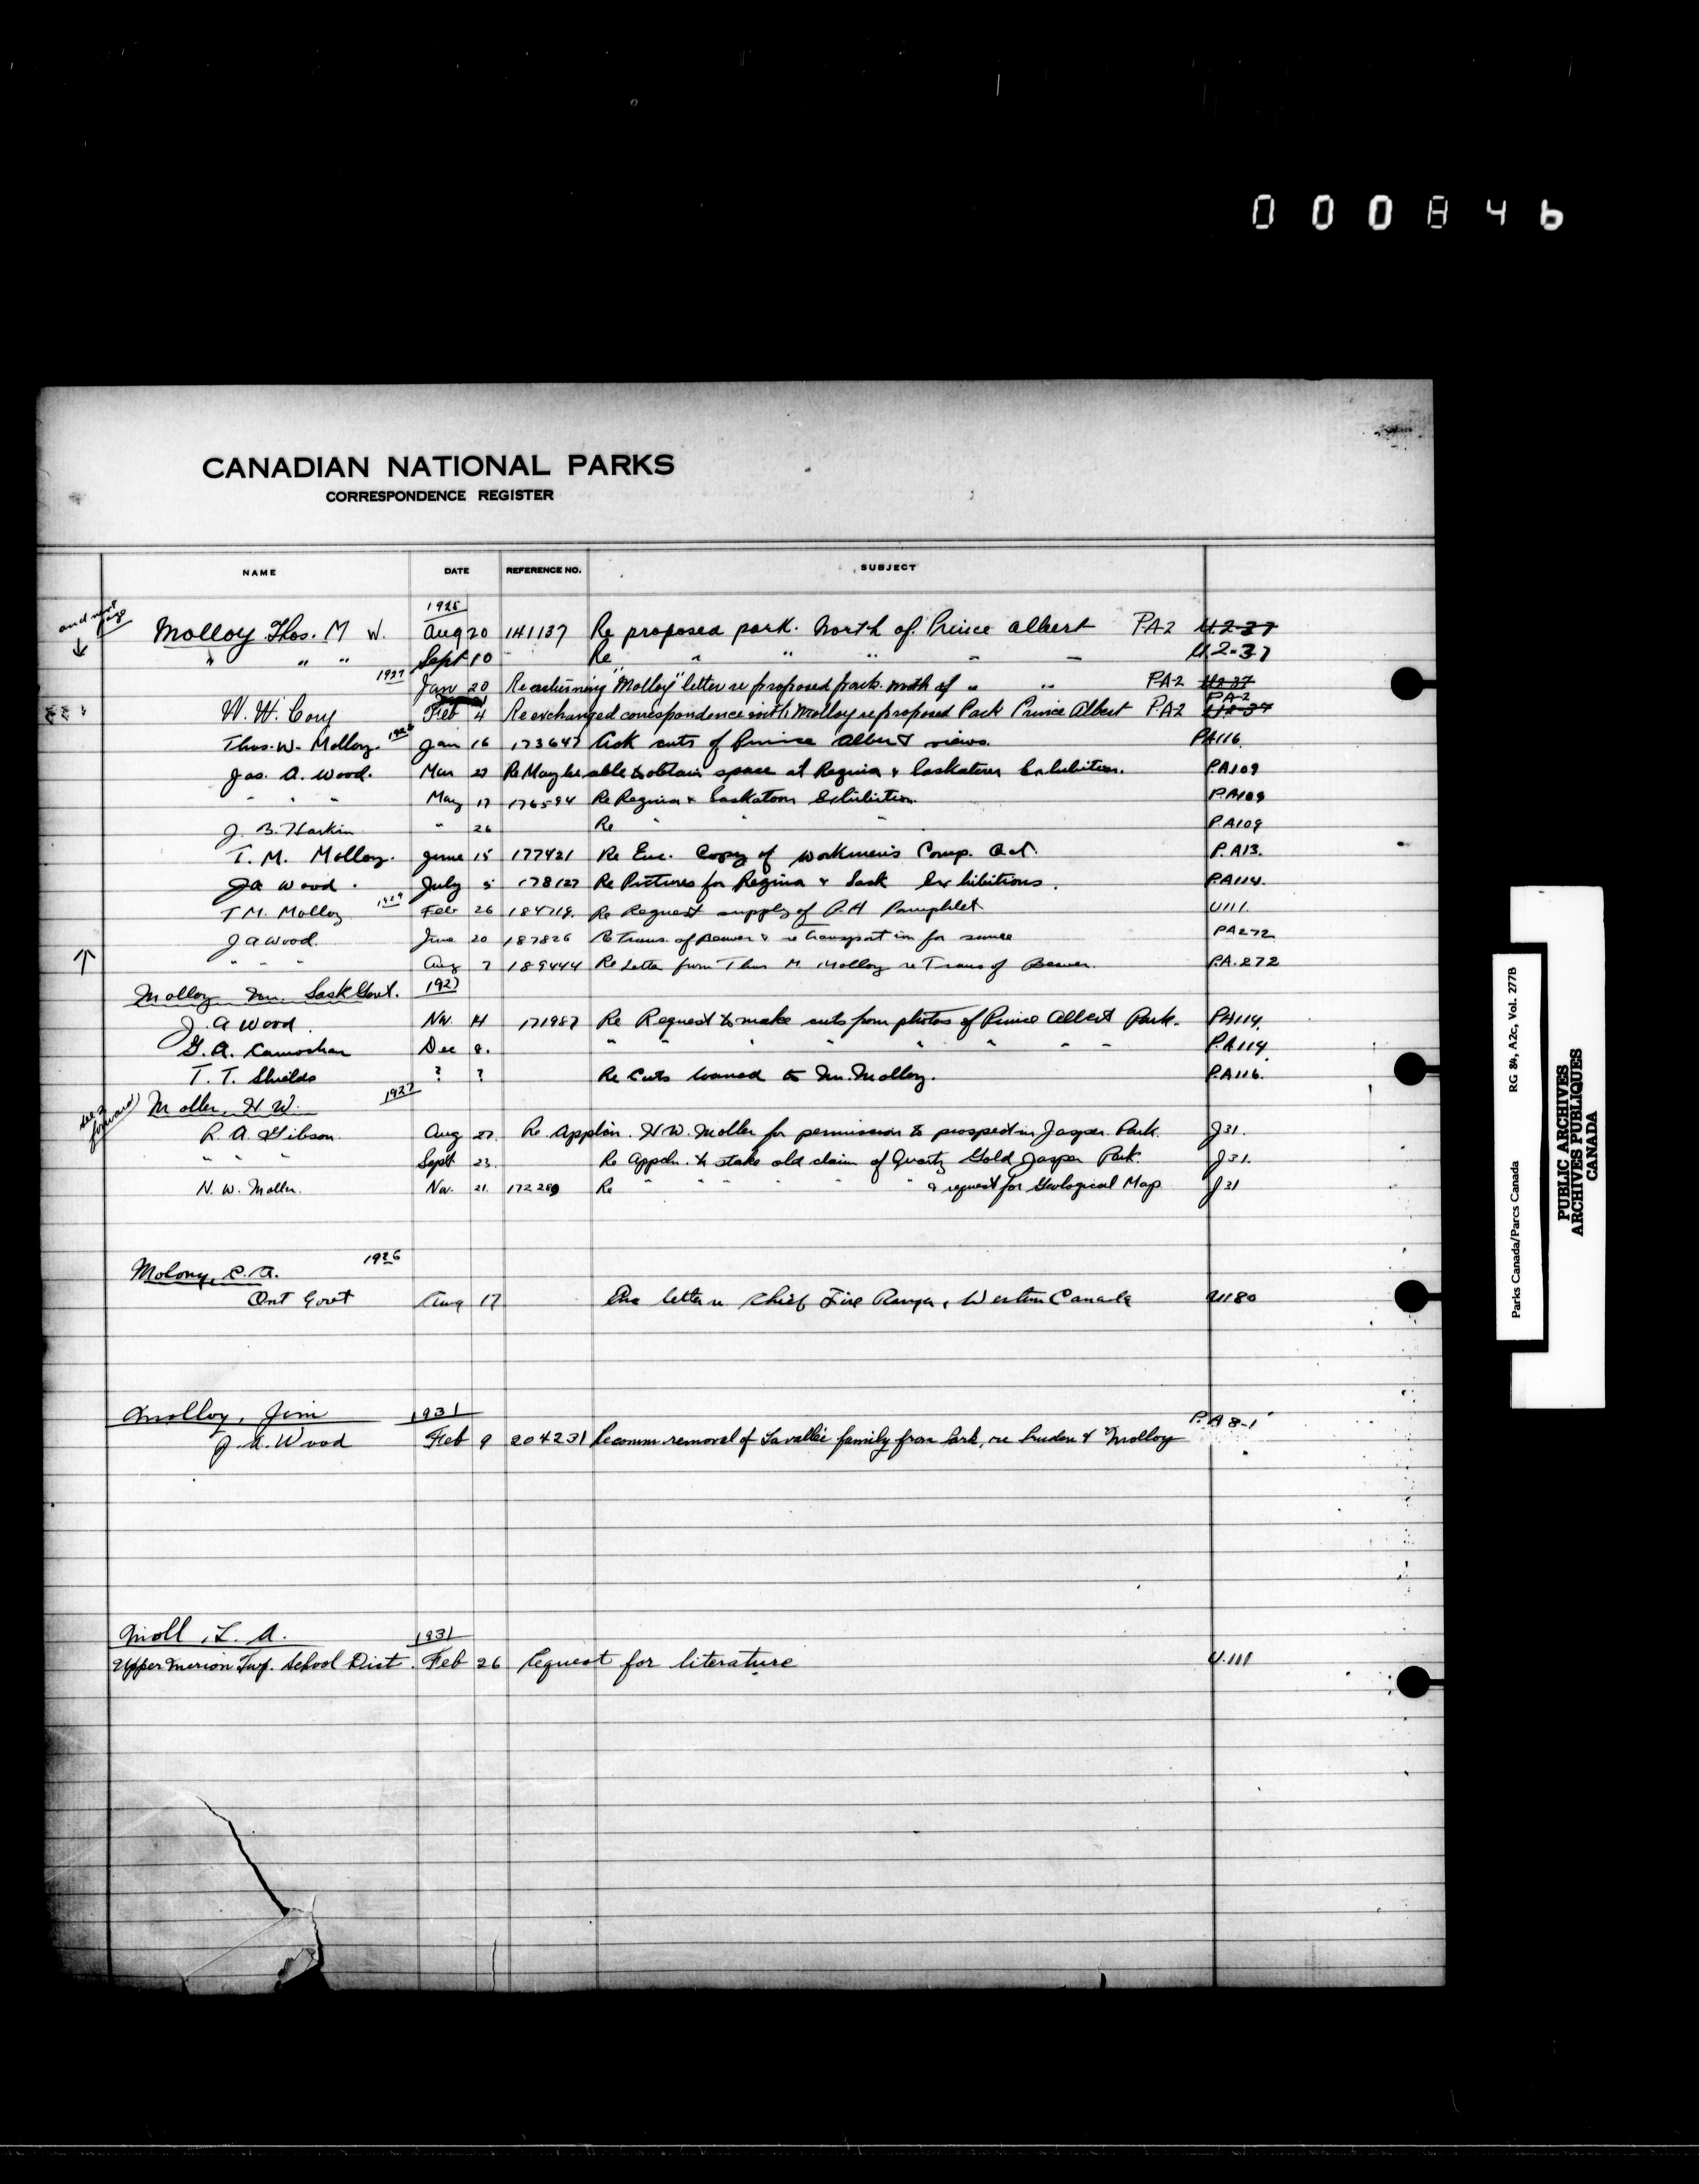 000846
CANADIAN NATIONAL PARKS
CORRESPONDENCE REGISTER
NAME DATE REFERENCE NO. SUBJECT
and next page
1925
Molloy Thos. M W. Aug 20 141137 Re proposed park. North of. Prince Albert PA2 U2-37
" " " Sept 10 Re " " " " " U2-37
1927
Jan 20 Re returning "Molloy" letter re proposed park. north of " " PA2 U2-37
W. W. Cory Feb 4 Re exchanged correspondence with Molloy re proposed Park Prince Albert PA2 PA2 U2-37
Thos. W. Molloy. 1928 Jan 16 173647 Ask cuts of Prince Albert views. PA116.
Jas. A. Wood. Mar 27 Re May be able to obtain space at Regina & Saskatoon Exhibition. P.A109
" " " May 17 176594 Re Regina & Saskatoon Exhibition. P.A109
J. B. Harkin " 26 Re " " P.A109
T. M. Molloy. June 15 177421 Re Enc. Copy of Workmen's Comp. Act. P.A13.
J A Wood. July 5 178127 Re Pictures for Regina & Sask Exhibitions. P.A114.
T M. Molloy 1929 Feb 26 184718. Re Request supply of P.A Pamphlet U111.
J a wood. June 20 187826 Re Trans. of Beaver & re transportation for same PA272
" " " Aug 7 189444 Re Letter from Thos M Molloy re Trans of Beaver. P.A.272
Molloy Mr. Sask Govt. 1927
J. A Wood. Nov. 14 171987 Re Request to make cuts from photos of Prince Albert Park. PA114.
G. A. Dec 8. " " " " " " " " P.A114.
T. T. Shields ? ? Re Cuts loaned to Mr. Molloy. P.A116.
see forward
Moller, H W. 1927
R. A. Gibson. Aug 27. Re Applin. H W. Moller for permission to prospect in Jasper Park. J31.
" " " Sept 23. Re Appln. to stake old claim of Quartz Gold Jasper Park. J31.
H. W. Moller. Nov. 21. 172289 Re " " " " " " & request for Geological Map J31
1926
Molony, C. A.
Ont Govt Aug 17 letter Chief Fire Ranger, Western Canada U180
Molloy, Jim 1931
J. A. Wood Feb 9 204231 Recomm. removal of Lavallée family from Park, re Pruden & Molloy P.A 8-1
Moll, L. A. 1931
Upper Merion Twp. School Dist. Feb 26 Request for literature U.111
Parks Canada/Parcs Canada RG 84, A2c, Vol. 2778
PUBLIC ARCHIVES
ARCHIVES PUBLIQUES
CANADA